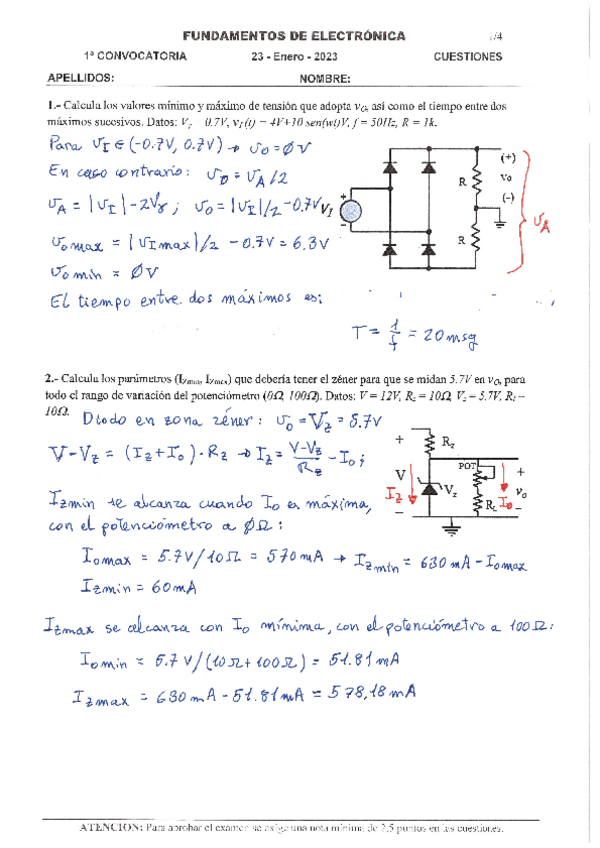 FUNDAMENTOS DE ELECTRÓNICA
1/4
1ª CONVOCATORIA 23 - Enero - 2023 CUESTIONES
APELLIDOS: NOMBRE:
1.- Calcula los valores mínimo y máximo de tensión que adopta vO, así como el tiempo entre dos
máximos sucesivos. Datos: Vγ = 0.7V, vI(t) = 4V+10 sen(wt)V, f = 50Hz, R = 1k.
Para vI ∈ (-0.7V, 0.7V) → vO = ØV
En caso contrario: vO = vA/2
vA = |vI| - 2Vγ ; vO = |vI|/2 - 0.7V
vomax = |vImax|/2 - 0.7V = 6.3V
vomin = ØV
El tiempo entre dos máximos es:
T = 1/f = 20 msg
VI
+
-
R
R
(+)
vo
(-)
vA
2.- Calcula los parámetros (IZmin, IZmax) que debería tener el zéner para que se midan 5.7V en vO, para
todo el rango de variación del potenciómetro (0Ω, 100Ω). Datos: V = 12V, Rz = 10Ω, Vz = 5.7V, RL =
10Ω.
Diodo en zona zéner: vO = Vz = 5.7V
V - Vz = (Iz + Io) · Rz → Iz = V-Vz/Rz - Io ;
Izmin se alcanza cuando Io es máxima,
con el potenciómetro a ØΩ :
Iomax = 5.7V/10Ω = 570mA → Izmin = 630 mA - Iomax
Izmin = 60mA
+
V
-
Rz
Iz
Vz
POT
RL
Io
+
vo
-
Izmax se alcanza con Io mínima, con el potenciómetro a 100Ω:
Iomin = 5.7V/(10Ω+100Ω) = 51.81mA
Izmax = 630mA - 51.81mA = 578,18mA
ATENCION: Para aprobar el examen se exige una nota mínima de 2.5 puntos en las cuestiones.